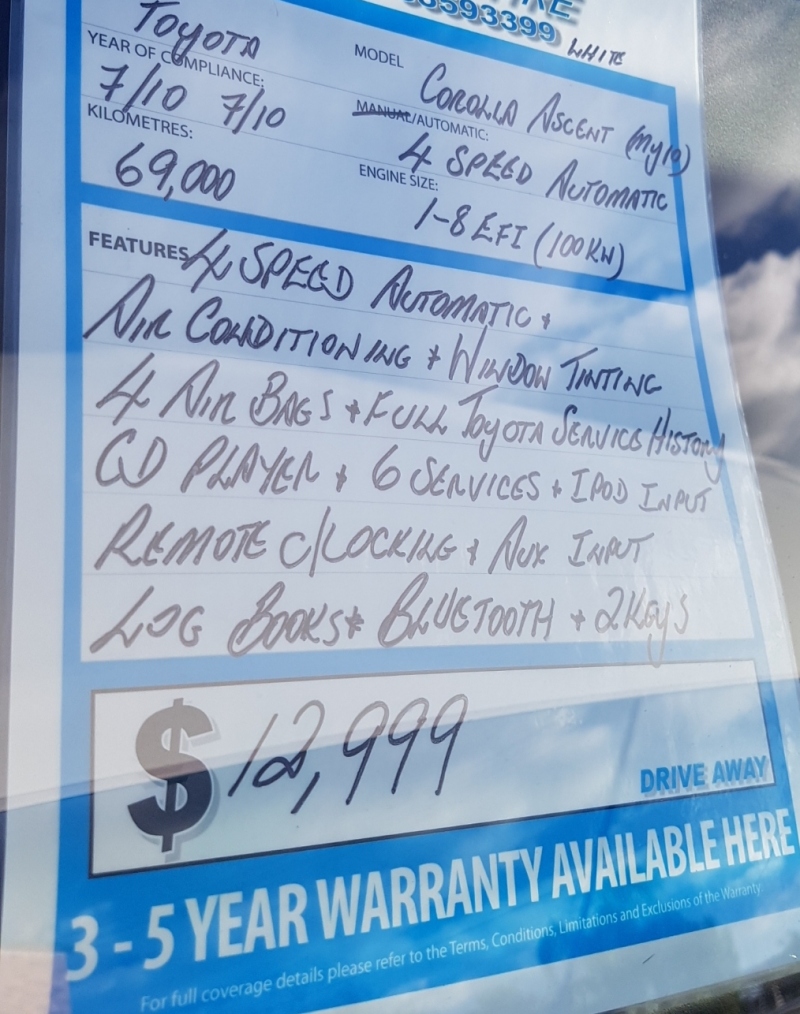 3593399
WHITE
TOYOTA
YEAR OF COMPLIANCE:
7/10 7/10
KILOMETRES:
69,000
MODEL
COROLLA ASCENT (MY10)
MANUAL/AUTOMATIC:
4 SPEED AUTOMATIC
ENGINE SIZE:
1-8 EFI (100KW)
FEATURES 4 SPEED AUTOMATIC +
AIR CONDITIONING + WINDOW TINTING
4 AIR BAGS + FULL TOYOTA SERVICE HISTORY
CD PLAYER + 6 SERVICES + IPOD INPUT
REMOTE C/LOCKING + AUX INPUT
LOG BOOKS + BLUETOOTH + 2 KEYS
$12,999
DRIVE AWAY
3 - 5 YEAR WARRANTY AVAILABLE HERE
For full coverage details please refer to the Terms, Conditions, Limitations and Exclusions of the Warranty